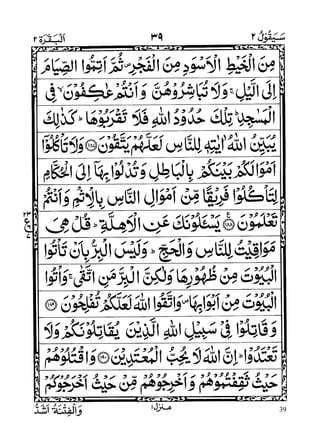 سَيَقُولُ ٢ ٣٩ اَلْبَقَرَة ٢
مِنَ الْخَيْطِ الْاَسْوَدِ مِنَ الْفَجْرِ ثُمَّ اَتِمُّوا الصِّيَامَ
اِلَى الَّيْلِ ۚ وَلَا تُبَاشِرُوْهُنَّ وَاَنْتُمْ عٰكِفُوْنَ فِى
الْمَسٰجِدِ ؕ تِلْكَ حُدُوْدُ اللّٰهِ فَلَا تَقْرَبُوْهَا ؕ كَذٰلِكَ
يُبَيِّنُ اللّٰهُ اٰيٰتِهٖ لِلنَّاسِ لَعَلَّهُمْ يَتَّقُوْنَ ﴿۱۸۷﴾ وَلَا تَاْكُلُوْۤا
اَمْوَالَكُمْ بَيْنَكُمْ بِالْبَاطِلِ وَتُدْلُوْا بِهَاۤ اِلَى الْحُكَّامِ
لِتَاْكُلُوْا فَرِيْقًا مِّنْ اَمْوَالِ النَّاسِ بِالْاِثْمِ وَاَنْتُمْ
تَعْلَمُوْنَ ﴿۱۸۸﴾ يَسْـَٔلُوْنَكَ عَنِ الْاَهِلَّةِ ؕ قُلْ هِىَ
مَوَاقِيْتُ لِلنَّاسِ وَالْحَجِّ ؕ وَلَيْسَ الْبِرُّ بِاَنْ تَاْتُوا
الْبُيُوْتَ مِنْ ظُهُوْرِهَا وَلٰكِنَّ الْبِرَّ مَنِ اتَّقٰى ۚ وَاْتُوا
الْبُيُوْتَ مِنْ اَبْوَابِهَا ۪ وَاتَّقُوا اللّٰهَ لَعَلَّكُمْ تُفْلِحُوْنَ ﴿۱۸۹﴾
وَقَاتِلُوْا فِىْ سَبِيْلِ اللّٰهِ الَّذِيْنَ يُقَاتِلُوْنَكُمْ وَلَا
تَعْتَدُوْا ؕ اِنَّ اللّٰهَ لَا يُحِبُّ الْمُعْتَدِيْنَ ﴿۱۹۰﴾ وَاقْتُلُوْهُمْ
حَيْثُ ثَقِفْتُمُوْهُمْ وَاَخْرِجُوْهُمْ مِّنْ حَيْثُ اَخْرَجُوْكُمْ
وَالْفِتْنَةُ اَشَدُّ
منزل ۱
39